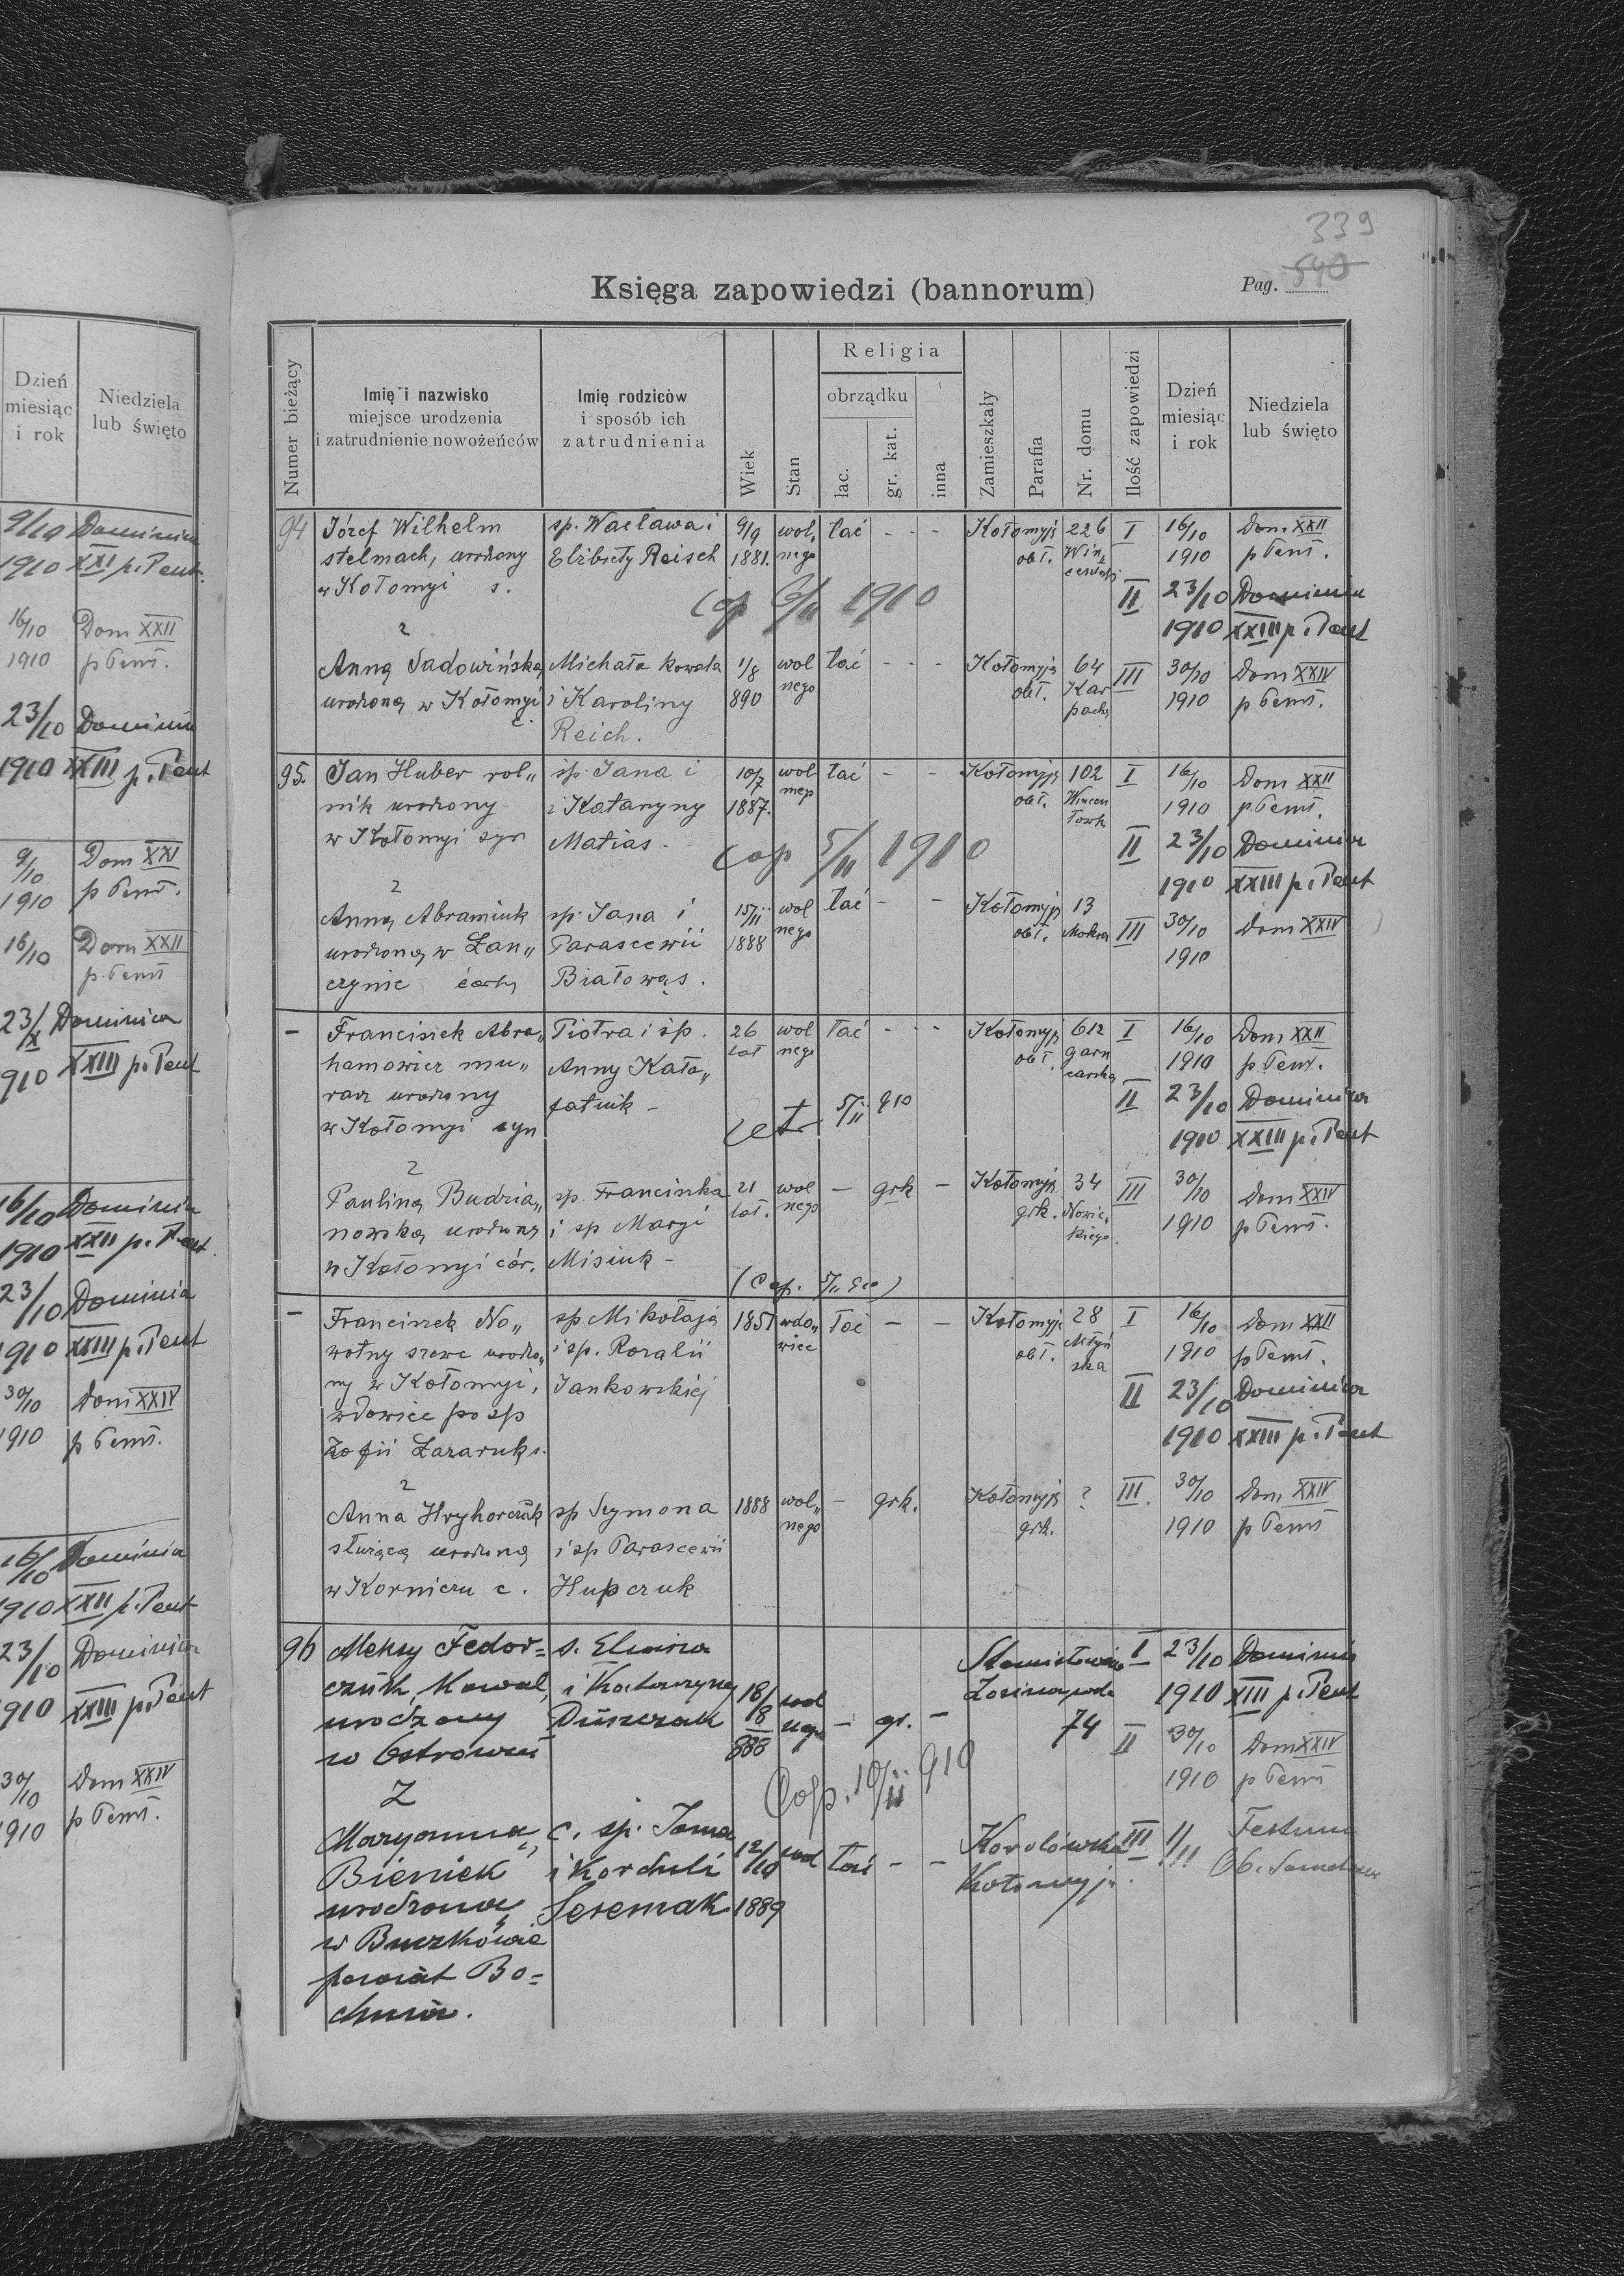 Dzień
miesiąc
i rok
Niedziela
lub święto
9/10 Dominica
1910 XXI p. Pent.
16/10 Dom XXII
1910 p Pent.
23/10 Dominica
1910 XXIII p. Pent
9/10 Dom XXI
1910 p Pent.
16/10 Dom XXII
p. Pent
23/X Dominica
910 XXIII p. Pent
16/10 Dominica
1910 XXII p. Pent.
23/10 Dominica
1910 XXIII p. Pent
30/10 Dom XXIV
1910 p Pent.
16/10 Dominica
1910 XXII p. Pent
23/10 Dominica
1910 XXIII p. Pent
30/10 Dom XXIV
1910 p Pent.
339
540
Księga zapowiedzi (bannorum)
Pag.
Numer bieżący
Imię i nazwisko
miejsce urodzenia
i zatrudnienie nowożeńców
Imię rodziców
i sposób ich
zatrudnienia
Wiek
Stan
Religia
obrządku
łac.
gr. kat.
inna
Zamieszkały
Parafia
Nr. domu
Ilość zapowiedzi
Dzień
miesiąc
i rok
Niedziela
lub święto
94 Józef Wilhelm sp. Wacława i 9/9 wol„ łać - - - Kołomyja 226 I 16/10 Dom XXII
stelmach, urodzony Elżbiety Reisch 1881. nego obł. 1910 p Pent.
w Kołomyi s.
cop 6/11 1910 II 23/10 Dominica
z 1910 XXIII p. Pent
Anną Sadowińską Michała Kowala 1/8 wol łać - - - Kołomyja 64 III 30/10 Dom XXIV
urodzoną w Kołomyi i Karoliny 890 nego obł. Kar 1910 p Pent.
c. Reich. packa
95. Jan Huber rol„ sp. Jana i 10/7 wol łać - - Kołomyja 102 I 16/10 Dom XXII
nik urodzony i Katarzyny 1887. nego obł. Wincen 1910 p. Pent.
w Kołomyi syn Matias. towk
cop 5/11 1910 II 23/10 Dominica
z 1910 XXIII p. Pent
Anną Abramiuk sp. Jana i 15/11 wol łać - - Kołomyja 13 III 30/10 Dom XXIV
urodzoną w Łan„ Parascewii 1888 nego obł. Mokra 1910
czynie córką Białowąs.
- Franciszek Abra„ Piotra i śp. 26 wol łać - - - Kołomyja 612 I 16/10 Dom XXII
hamowicz mu„ Anny Kała„ lat nego obł. garn 1910 p. Pent.
rarz urodzony fatnik - carska
w Kołomyi syn 5/11 910 II 23/10 Dominica
z 1910 XXIII p. Pent
Pauliną Budzia„ sp. Franciszka 21 wol - grk - Kołomyja 34 III 30/10 Dom XXIV
nowską urodzoną i sp Maryi lat. nego grk. Nowic„ 1910 p Pent.
w Kołomyi cór. Misiuk - kiego.
(Cop. 5/11 910)
- Franciszek No„ sp Mikołaja 1851 wdo„ łać - - Kołomyja 28 I 16/10 Dom XXII
wotny szewc urodzo„ i sp. Rozalii wiec obł. Młyń 1910 p Pent.
ny w Kołomyi, Jankowskiej ska
II 23/10 Dominica
wdowiec po sp 1910 XXIII p. Pent
Zofii Łazaruk s.
z
Anna Hryhorczuk sp Szymona 1888 wol„ - grk. Kołomyja ? III. 30/10 Dom XXIV
służącą urodzoną i sp Parascewii nego grk. 1910 p Pent
w Korniczu c. Hupczuk
96 Aleksy Fedor= s. I 23/10 Dominica
czuk, Kowal, i Katarzyny 18/8 wol 1910 XIII p. Pent
urodzony Duszczak 888 nego - gr. - 74 II 30/10 Dom XXIV
w Ostrowcu 1910 p Pent
z Cop. 10/11 910
Maryanna c. sp. Jana 12/10 wol łać - - Korolówka III 1/11 Festum
Bieniek i Korduli 1889 Kołomyja.
urodzona Seremak
w Buczkowie
powiat Bo=
chnia.